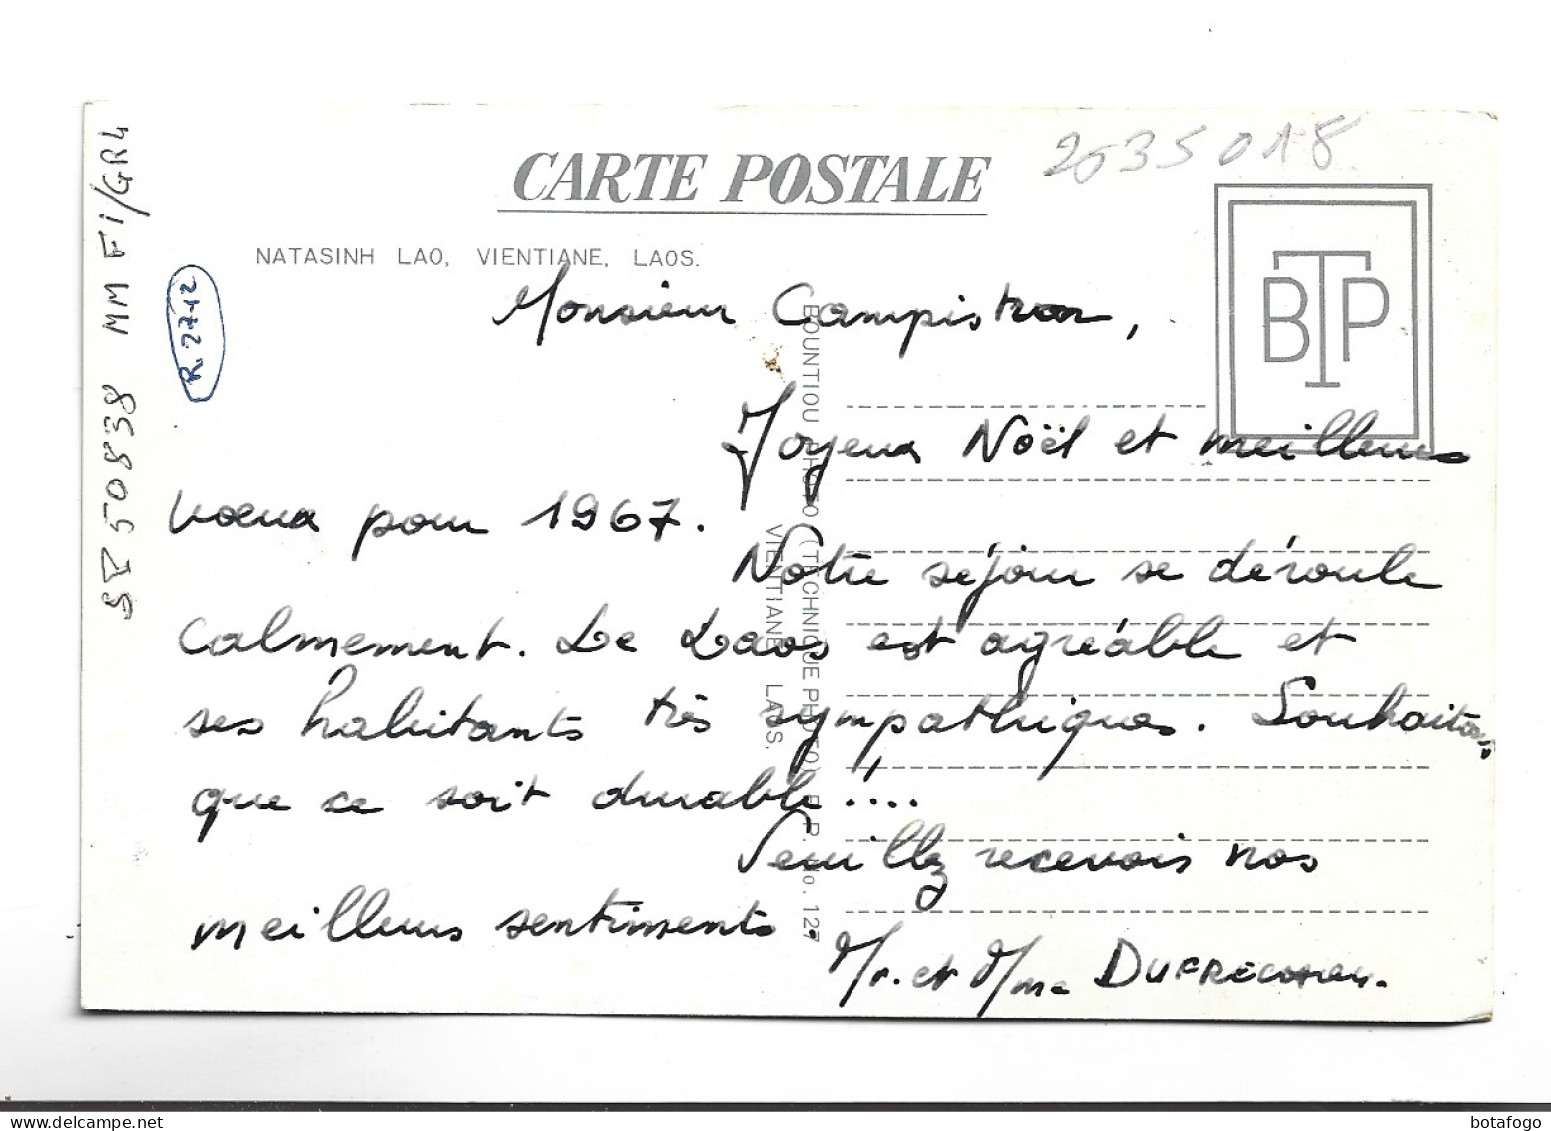 2535018
CARTE POSTALE
NATASINH LAO, VIENTIANE, LAOS.
BTP
SE 50838 MM Fi/GR4
R. 27.12
Monsieur Campistron,
Joyeux Noël et meilleurs
vœux pour 1967.
Notre séjour se déroule
calmement. Le Laos est agréable et
ses habitants très sympathiques. Souhaitons
que ce soit durable !....
Veuillez recevoir nos
meilleurs sentiments.
Mr. et Mme
BOUNTIOU PHOTO (TECHNIQUE PHOTO) B. P. No. 127
VIENTIANE LAOS.
botafogo